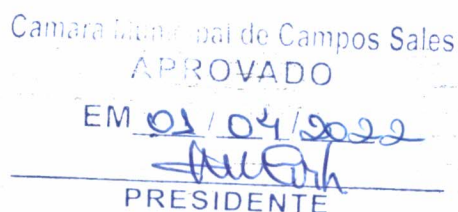 Camara Municipal de Campos Sales
APROVADO
EM 01/04/2022
PRESIDENTE